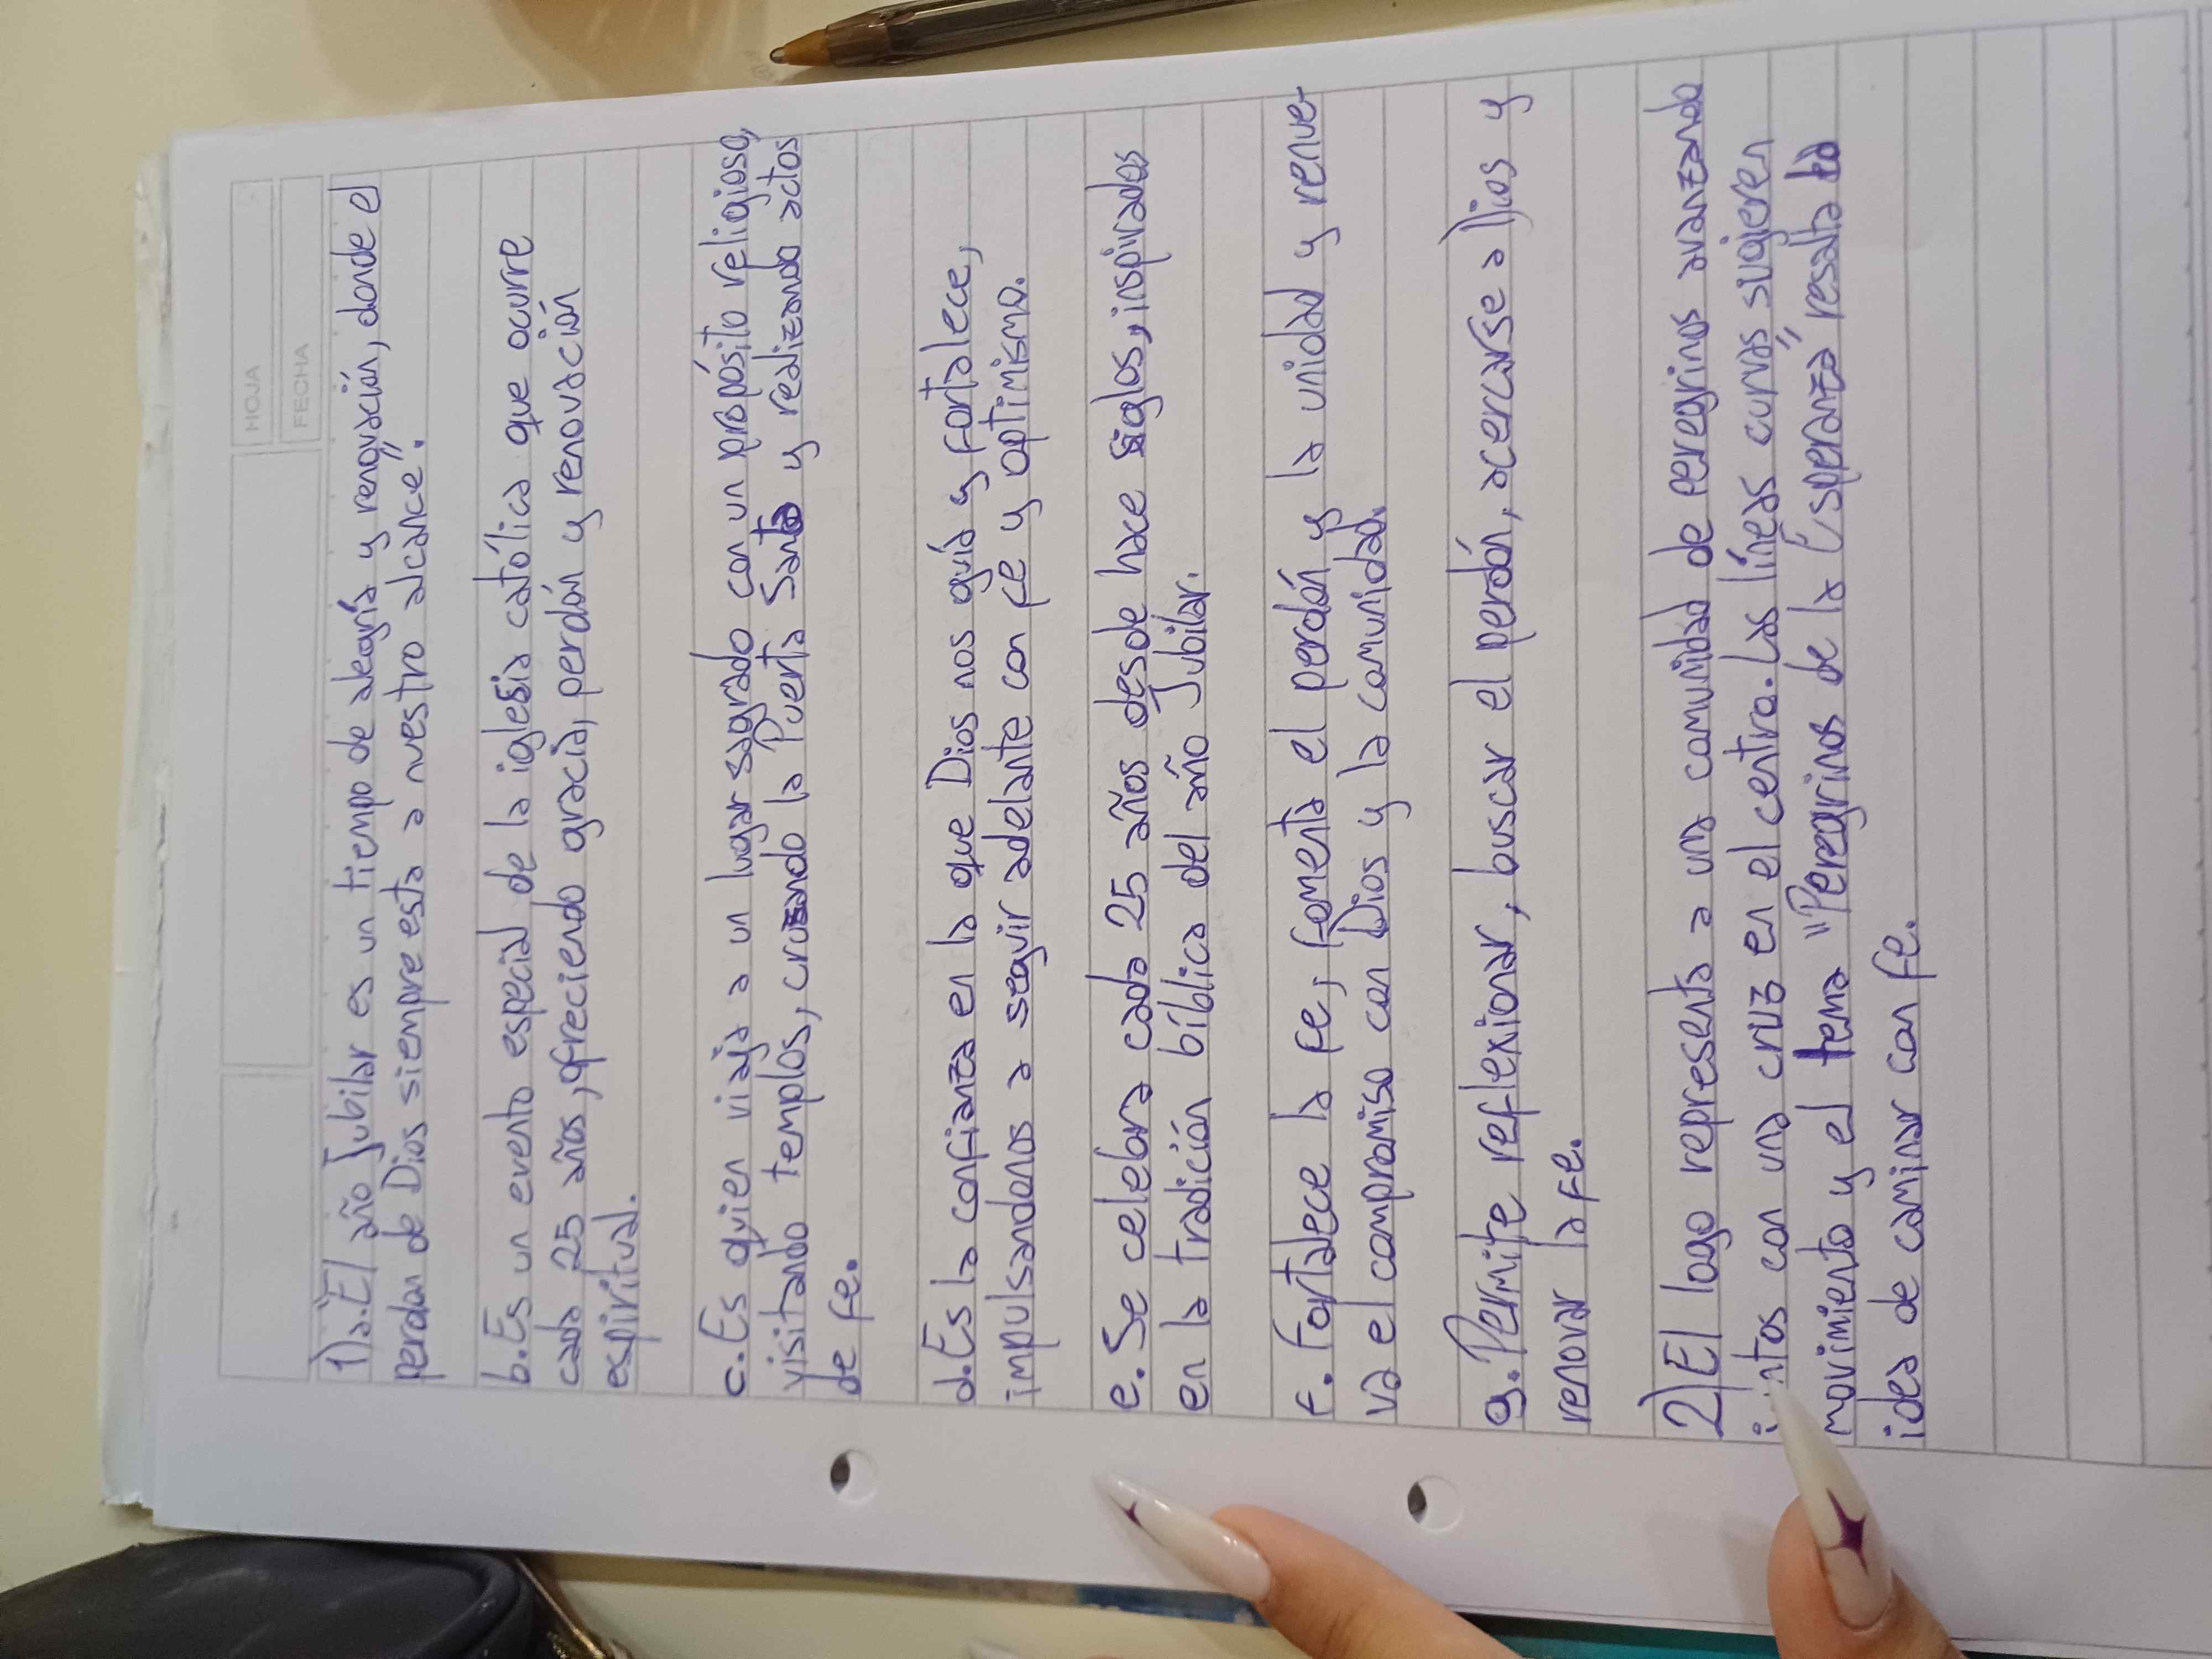 HOJA
FECHA
1)a. El año Jubilar es un tiempo de alegría y renovación, donde el
perdon de Dios siempre esta a nuestro alcance".
b. Es un evento especial de la iglesia católica que ocurre
cada 25 años, ofreciendo gracia, perdón y renovación
espiritual.
c. Es quien viaja a un lugar sagrado con un propósito religioso,
visitando templos, crusando la Puerta Santa y realizando actos
de fe.
d. Es la confianza en la que Dios nos guía y fortalece,
impulsandonos a seguir adelante con fe y optimismo.
e. Se celebra cada 25 años desde hace siglos, inspirados
en la tradición bíblica del año Jubilar.
f. Fortalece la fe, fomenta el perdón y la unidad y renue-
va el compromiso con Dios y la comunidad.
g. Permite reflexionar, buscar el perdón, acercarse a Dios y
renovar la fe.
2) El logo representa a una comunidad de peregrinos avanzando
con una cruz en el centro. Las líneas curvas sugieren
movimiento y el tema "Peregrinos de la Esperanza" resalta la
idea de caminar con fe.